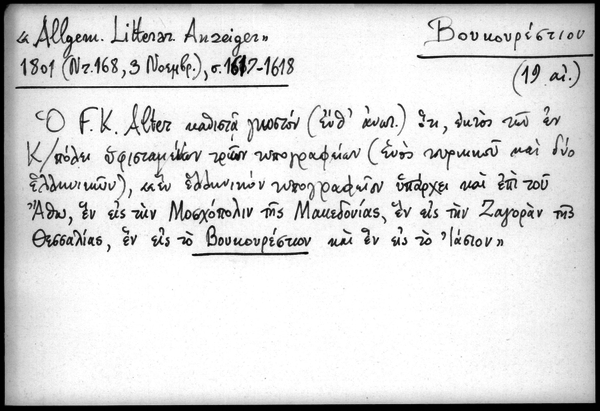 «Allgem. Litterar. Anzeiger»
Βουκουρέστιον
1801 (Nr. 168, 3 Νοεμβρ.), σ. 1617-1618
(19 αἰ.)
Ὁ F. K. Alter καθιστᾷ γνωστόν (ἔνθ' ἀνωτ.) ὅτι, ἐκτὸς τῶν ἐν
Κ/πόλει ὑφισταμένων τριῶν τυπογραφείων (ἑνὸς τουρκικοῦ καὶ δύο
ἑλληνικῶν), «ἓν ἑλληνικόν τυπογραφεῖον ὑπάρχει καὶ ἐπὶ τοῦ
Ἄθω, ἓν εἰς τὴν Μοσχόπολιν τῆς Μακεδονίας, ἓν εἰς τὴν Ζαγορὰν τῆς
Θεσσαλίας, ἓν εἰς τὸ Βουκουρέστιον καὶ ἓν εἰς τὸ Ἰάσιον»